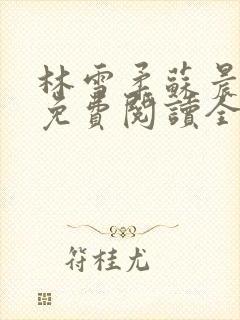 林雪柔蘇晨
免費閱讀全
符桂尤